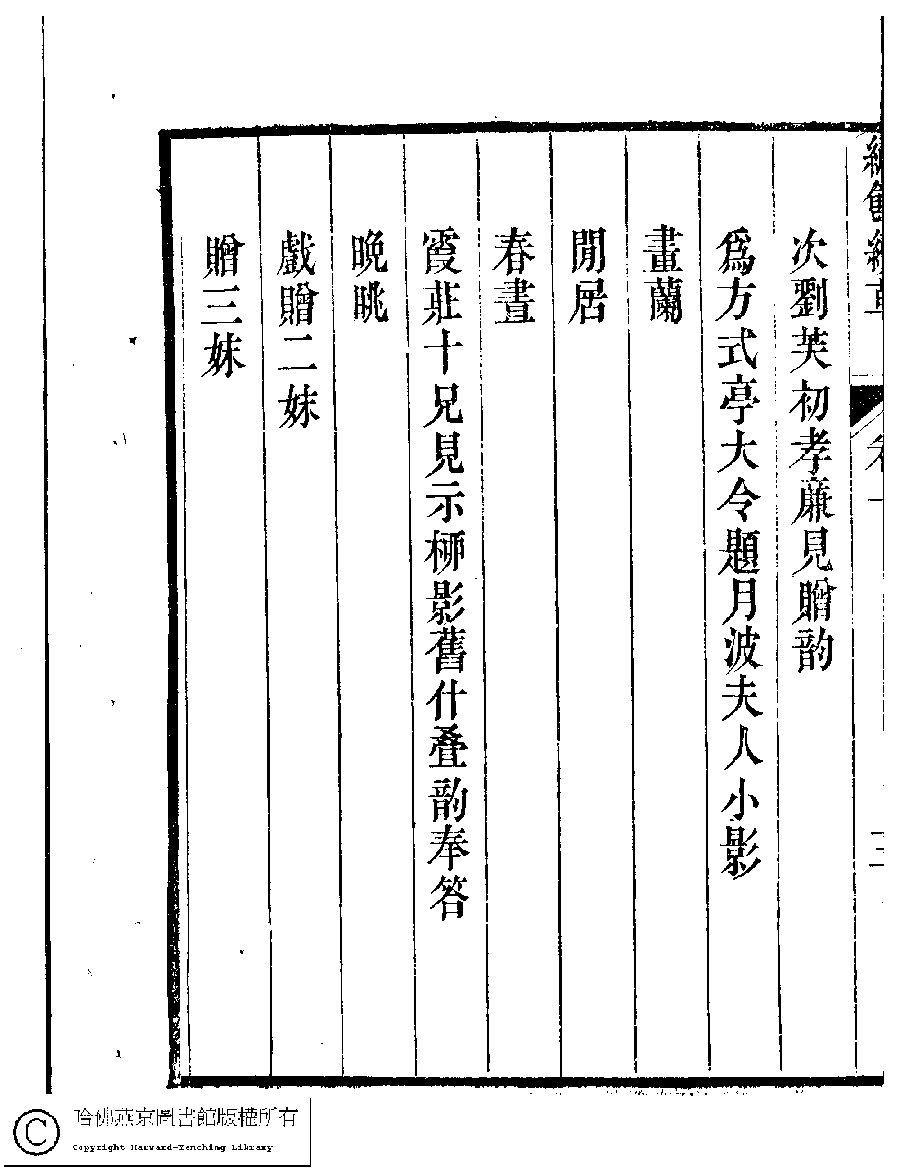 次劉芙初孝廉見贈韵
爲方式亭大令題月波夫人小影
畫蘭
閒居
春晝
霞莊十兄見示桺影舊什叠韵奉答
晚眺
戲贈二妹
贈三妹
哈佛燕京圖書館版權所有
Copyright Harvard-Yenching Library